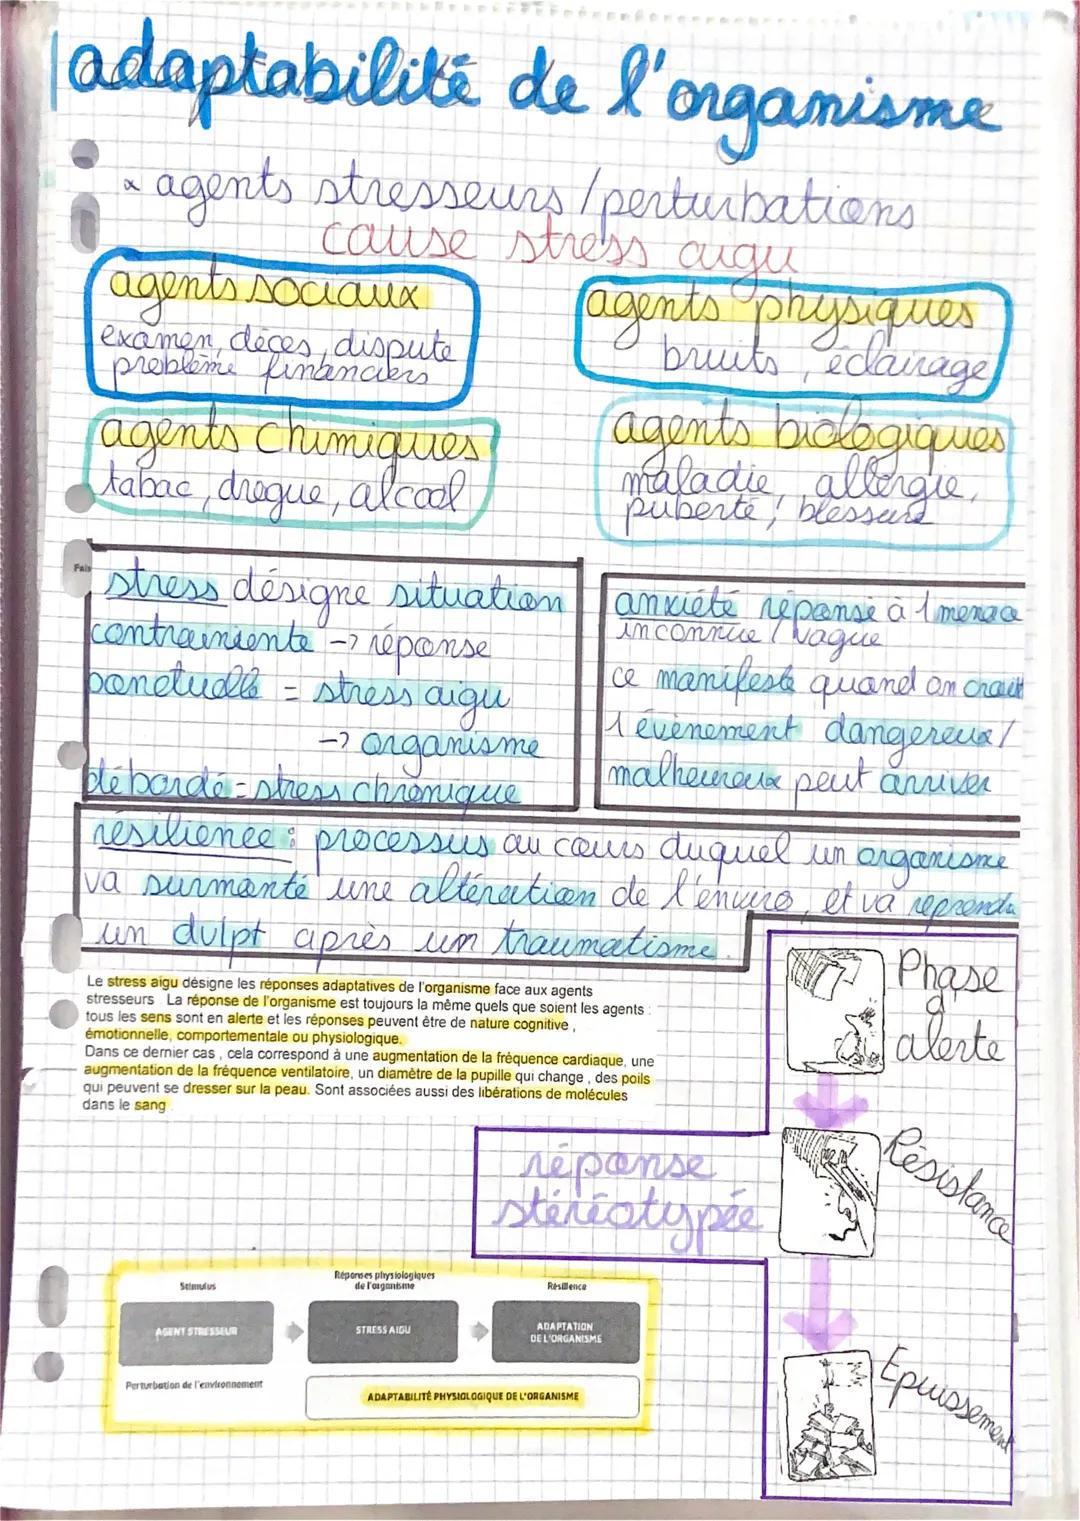 adaptabilité de l'organisme
× agents stresseurs / perturbations
cause stress aigu
agents sociaux
examen, décès, dispute
problème financiers
agents physiques
bruits, éclairage
agents chimiques
tabac, drogue, alcool
agents biologiques
maladie, allergie,
puberté, blessure
Fais
stress désigne situation
contraniente -> réponse
ponctuelle = stress aigu
-> organisme
débordé = stress chronique
anxiété réponse à 1 menace
inconnue / vague
ce manifeste quand on crait
1 évènement dangereux /
malheureux peut arriver
résilience : processus au cours duquel un organisme
va surmonté une altération de l'enviro, et va reprendre
un dvlpt après un traumatisme.
Le stress aigu désigne les réponses adaptatives de l'organisme face aux agents
stresseurs . La réponse de l'organisme est toujours la même quels que soient les agents :
tous les sens sont en alerte et les réponses peuvent être de nature cognitive ,
émotionnelle, comportementale ou physiologique.
Dans ce dernier cas , cela correspond à une augmentation de la fréquence cardiaque, une
augmentation de la fréquence ventilatoire, un diamètre de la pupille qui change , des poils
qui peuvent se dresser sur la peau. Sont associées aussi des libérations de molécules
dans le sang .
Phase
d'
alerte
Résistance
Epuissement
réponse
stéréotypée
Stimulus
Réponses physiologiques
de l'organisme
Résilience
AGENT STRESSEUR
STRESS AIGU
ADAPTATION
DE L'ORGANISME
Perturbation de l'environnement
ADAPTABILITÉ PHYSIOLOGIQUE DE L'ORGANISME